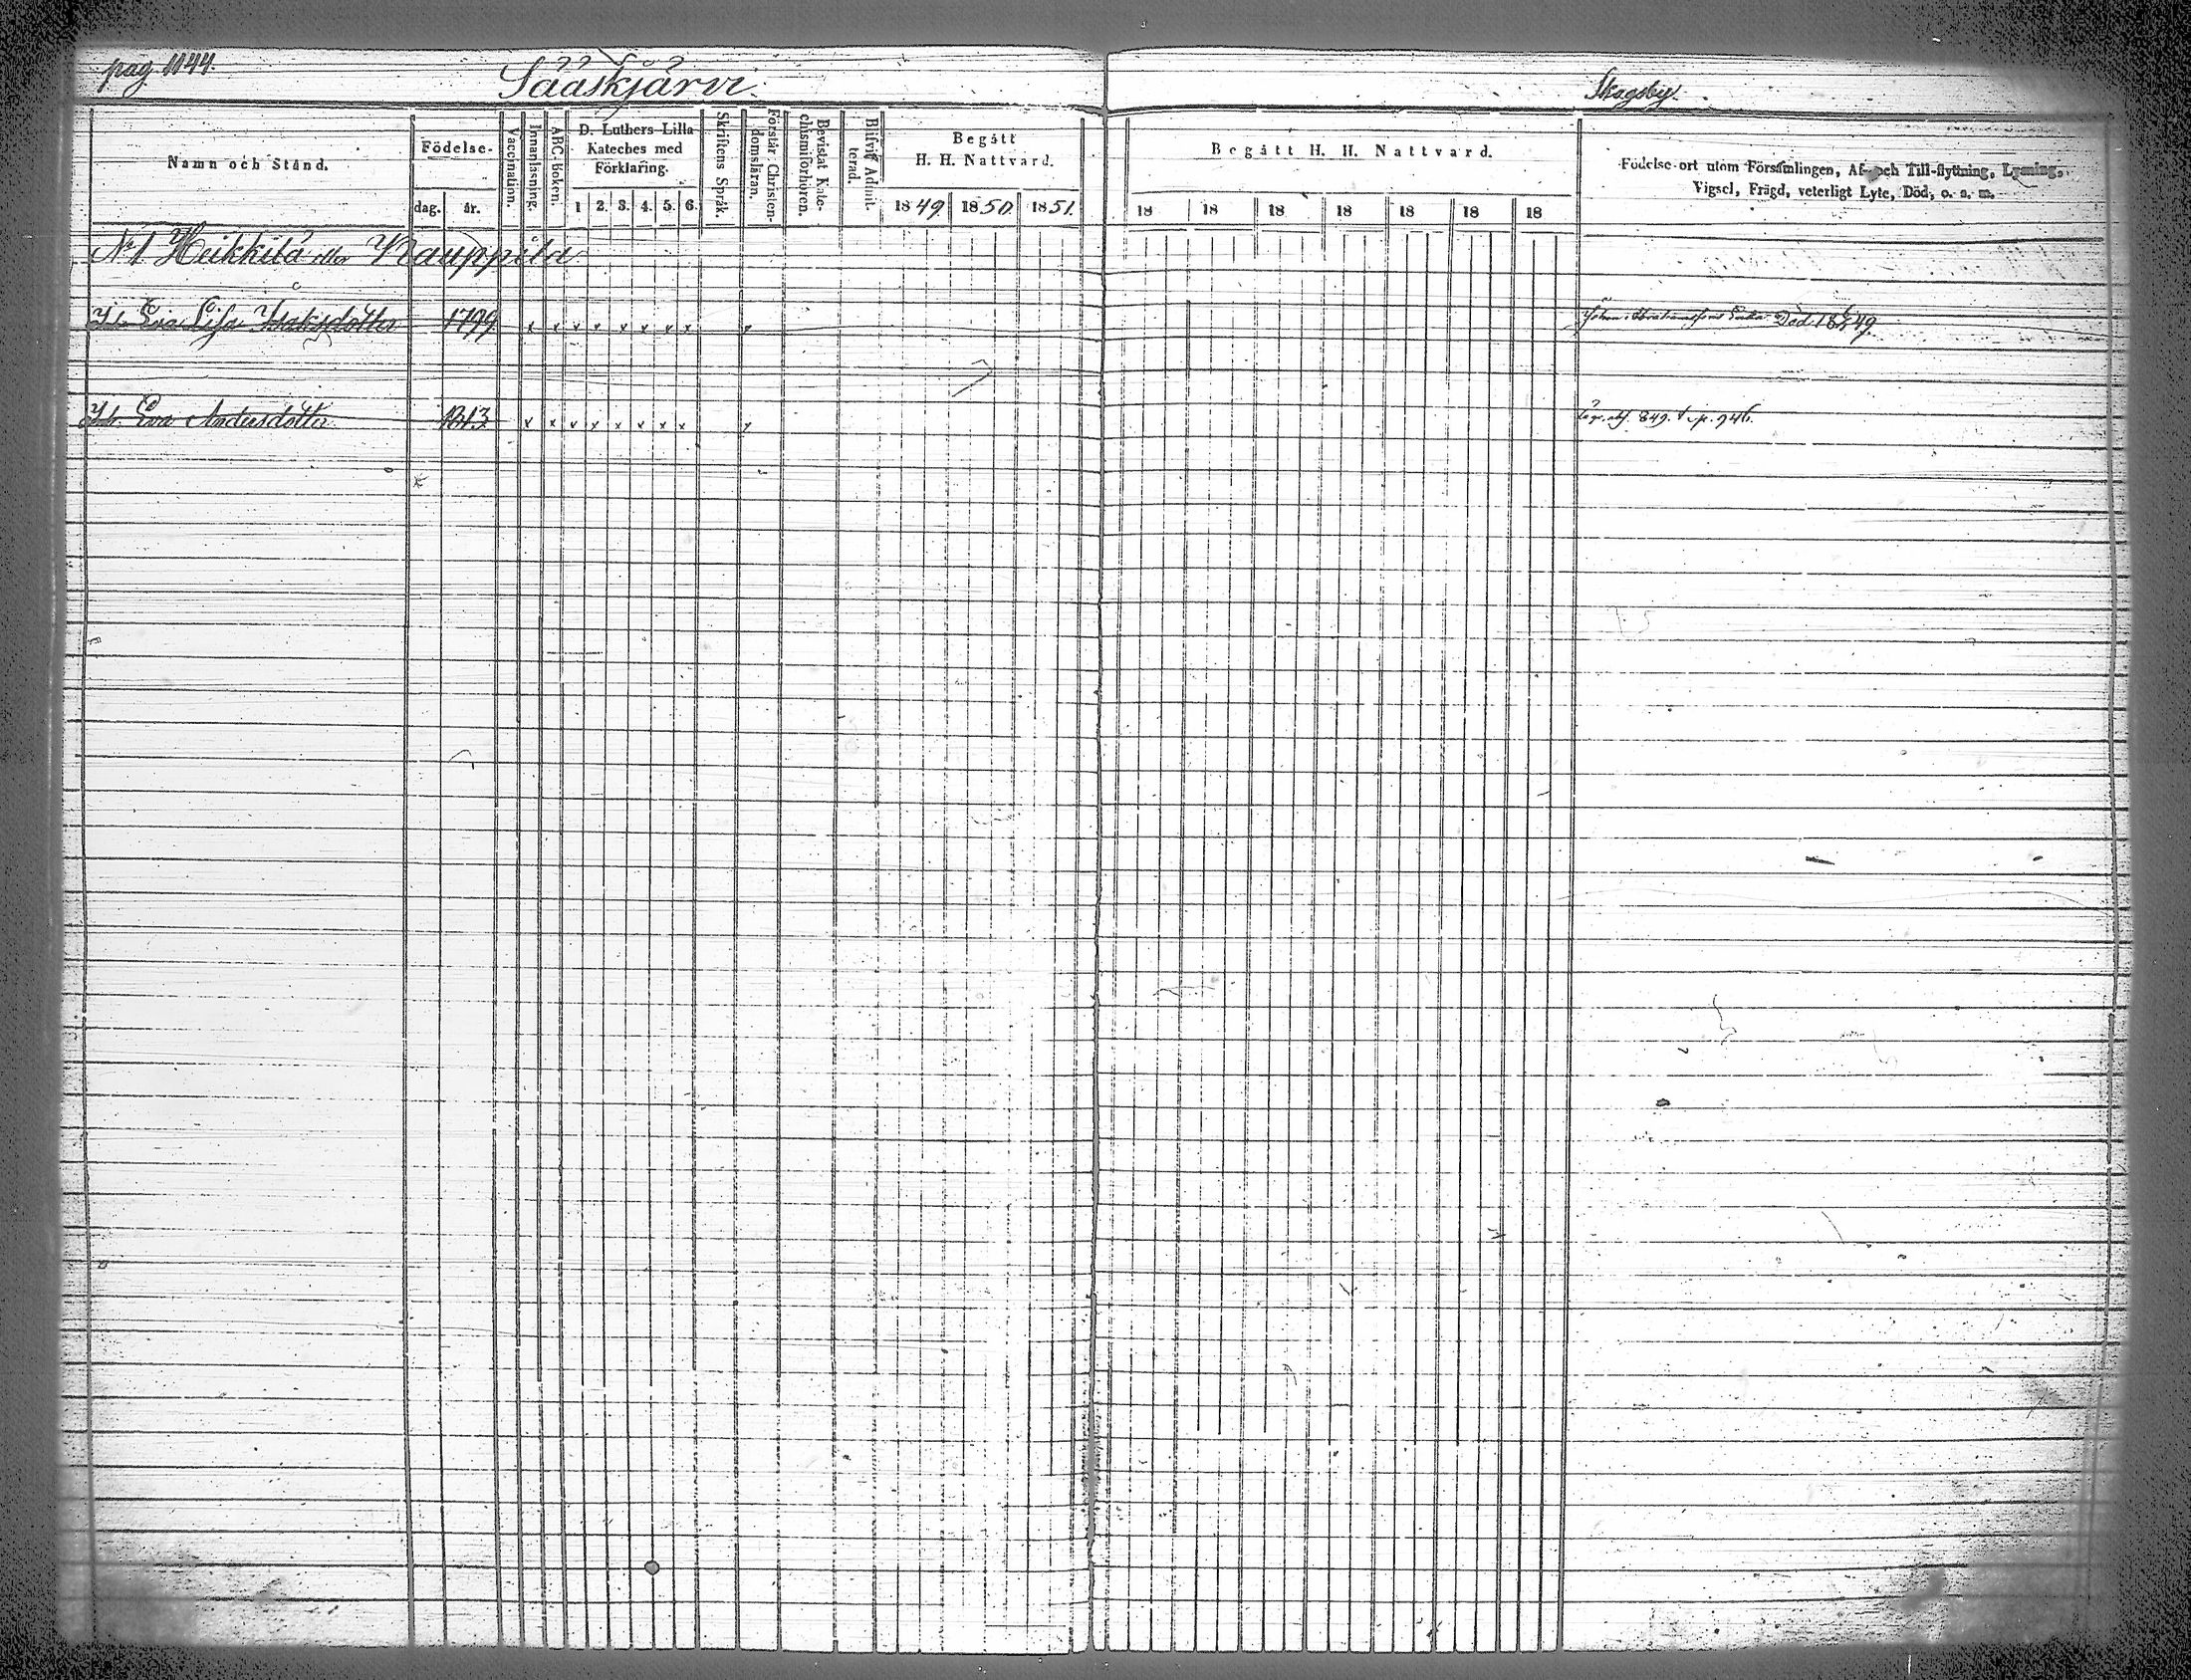 pag. 1144.
Sääskjärvi.
Skogsby.
Namn och Stånd.
Födelse-
dag. år.
Vaccination.
Innanläsning.
ABC-boken.
D. Luthers Lilla
Kateches med
Förklaring.
1 2. 3. 4. 5. 6.
Skriftens Språk.
Förstår Christen-
domsläran.
Bevistat Kate-
chismiförhören.
Blifvit Admit-
terad.
Begått
H. H. Nattvard.
1849. 1850. 1851.
Begått H. H. Nattvard.
18 18 18 18 18 18 18
Födelse-ort utom Församlingen, Af- och Till-flyttning, Lysning,
Vigsel, Frägd, veterligt Lyte, Död, o. s. m.
No 1 Heikkilä eller Kauppila
Eva Lisa Isaksdotter 1799. x x x x x x x x
Johan Abrahamssons Enka Död 49.
Eva Andersdotter 1813. x x x x x x x x
849. p. 946.